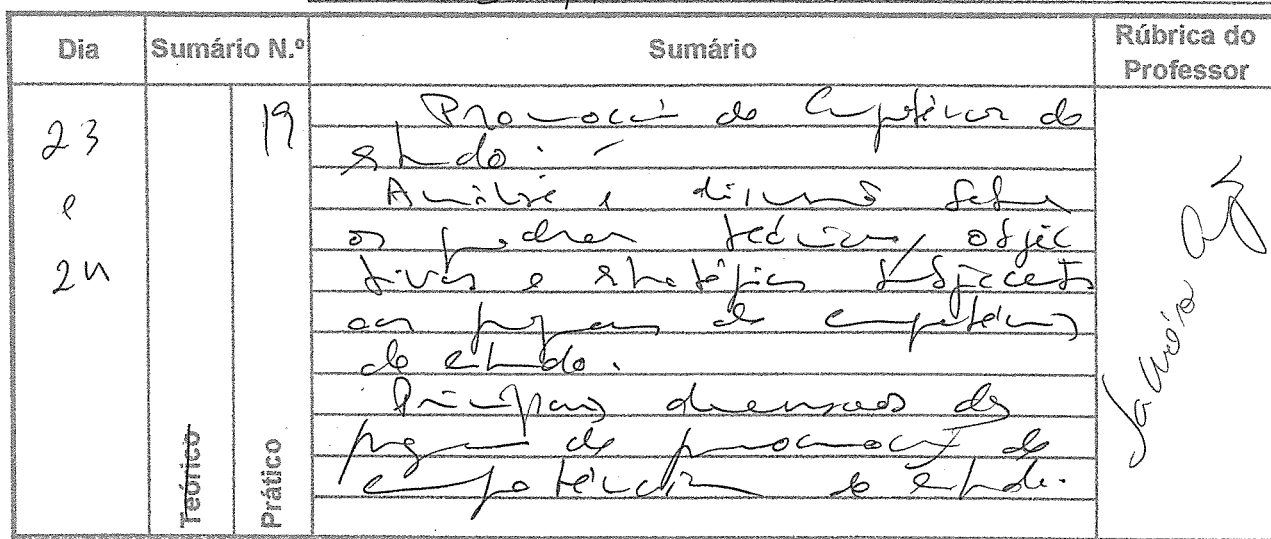 Dia Sumário N.º Sumário Rúbrica do Professor
23 e 24
19
Promoção de Competências de
estudo.
Análise e discussão sobre
os pressupostos teóricos, objec
tivos e estratégias subjacentes
aos programas de competências
de estudo.
Principais dimensões dos
programas de promoção de
competências de estudo.
Teórico
Prático